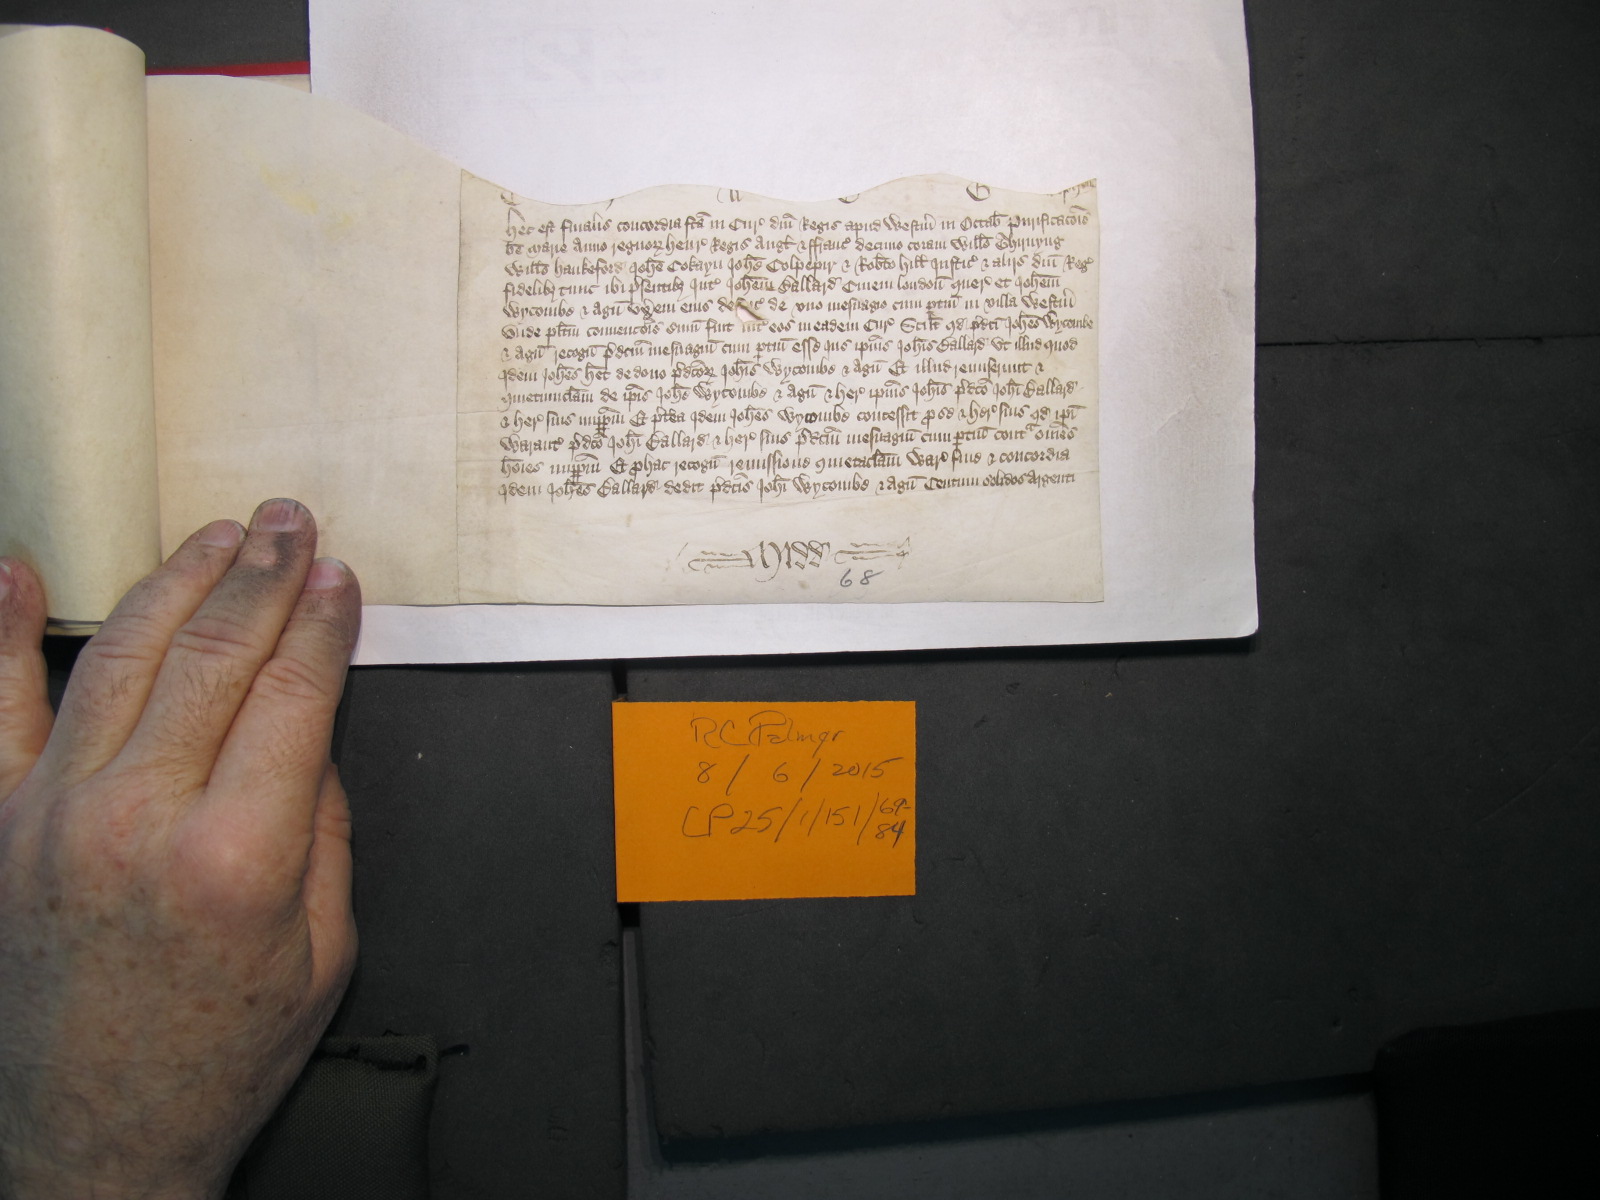 Hec est finalis concordia fcā in Cur' dnī Regis apud Westm̄ in Octab̄ Purificacōis
bē Marie Anno regnoꝝ Henr' Regis Angł & ffranc' decimo coram Willō Thirnyng
Willō Hankeford Johē Cokayn Johē Colpepir & Robto Hill Justic' & alijs dnī Reg'
fidelibꝫ tunc ibi p̄sentibꝫ Int' Johem Ballard Civem london̄ quer' et Johem
Wycombe & Agn̄ vx̄em eius de vno mesuagio cum ptin̄ in villa Westm̄
Vnde plītm convencōis sum̄ fuit int' eos in eadem Cur' Scilt qd p̄dci Johes Wycombe
& Agn̄ recogn̄ p̄dcm mesuagium cum ptin̄ esse Jus ipius Johis Ballard vt illud quod
Idem Johes het de dono p̄dcoꝝ Johis Wycombe & Agn̄ Et illud remiserunt &
quietumclam̄ de ipīs Johe Wycombe & Agn̄ & her' ipius Johis p̄dco Johi Ballard
& her' suis imppm̄ Et p̄tea Idem Johes Wycombe concessit p se & her' suis qd ipi
Warant' p̄dco Johi Ballard & her' suis p̄dcm mesuagium cum ptin̄ contᵃ omēs
hoīes imppm̄ Et p hac recogn̄ remissione quietaclam̄ War' fine & concordia
Idem Johes Ballard dedit p̄dcis Johi Wycombe & Agn̄ Centum solidos Argenti
Midd
68
RC Palmer
8 / 6 / 2015
CP 25/1/151/69-
84